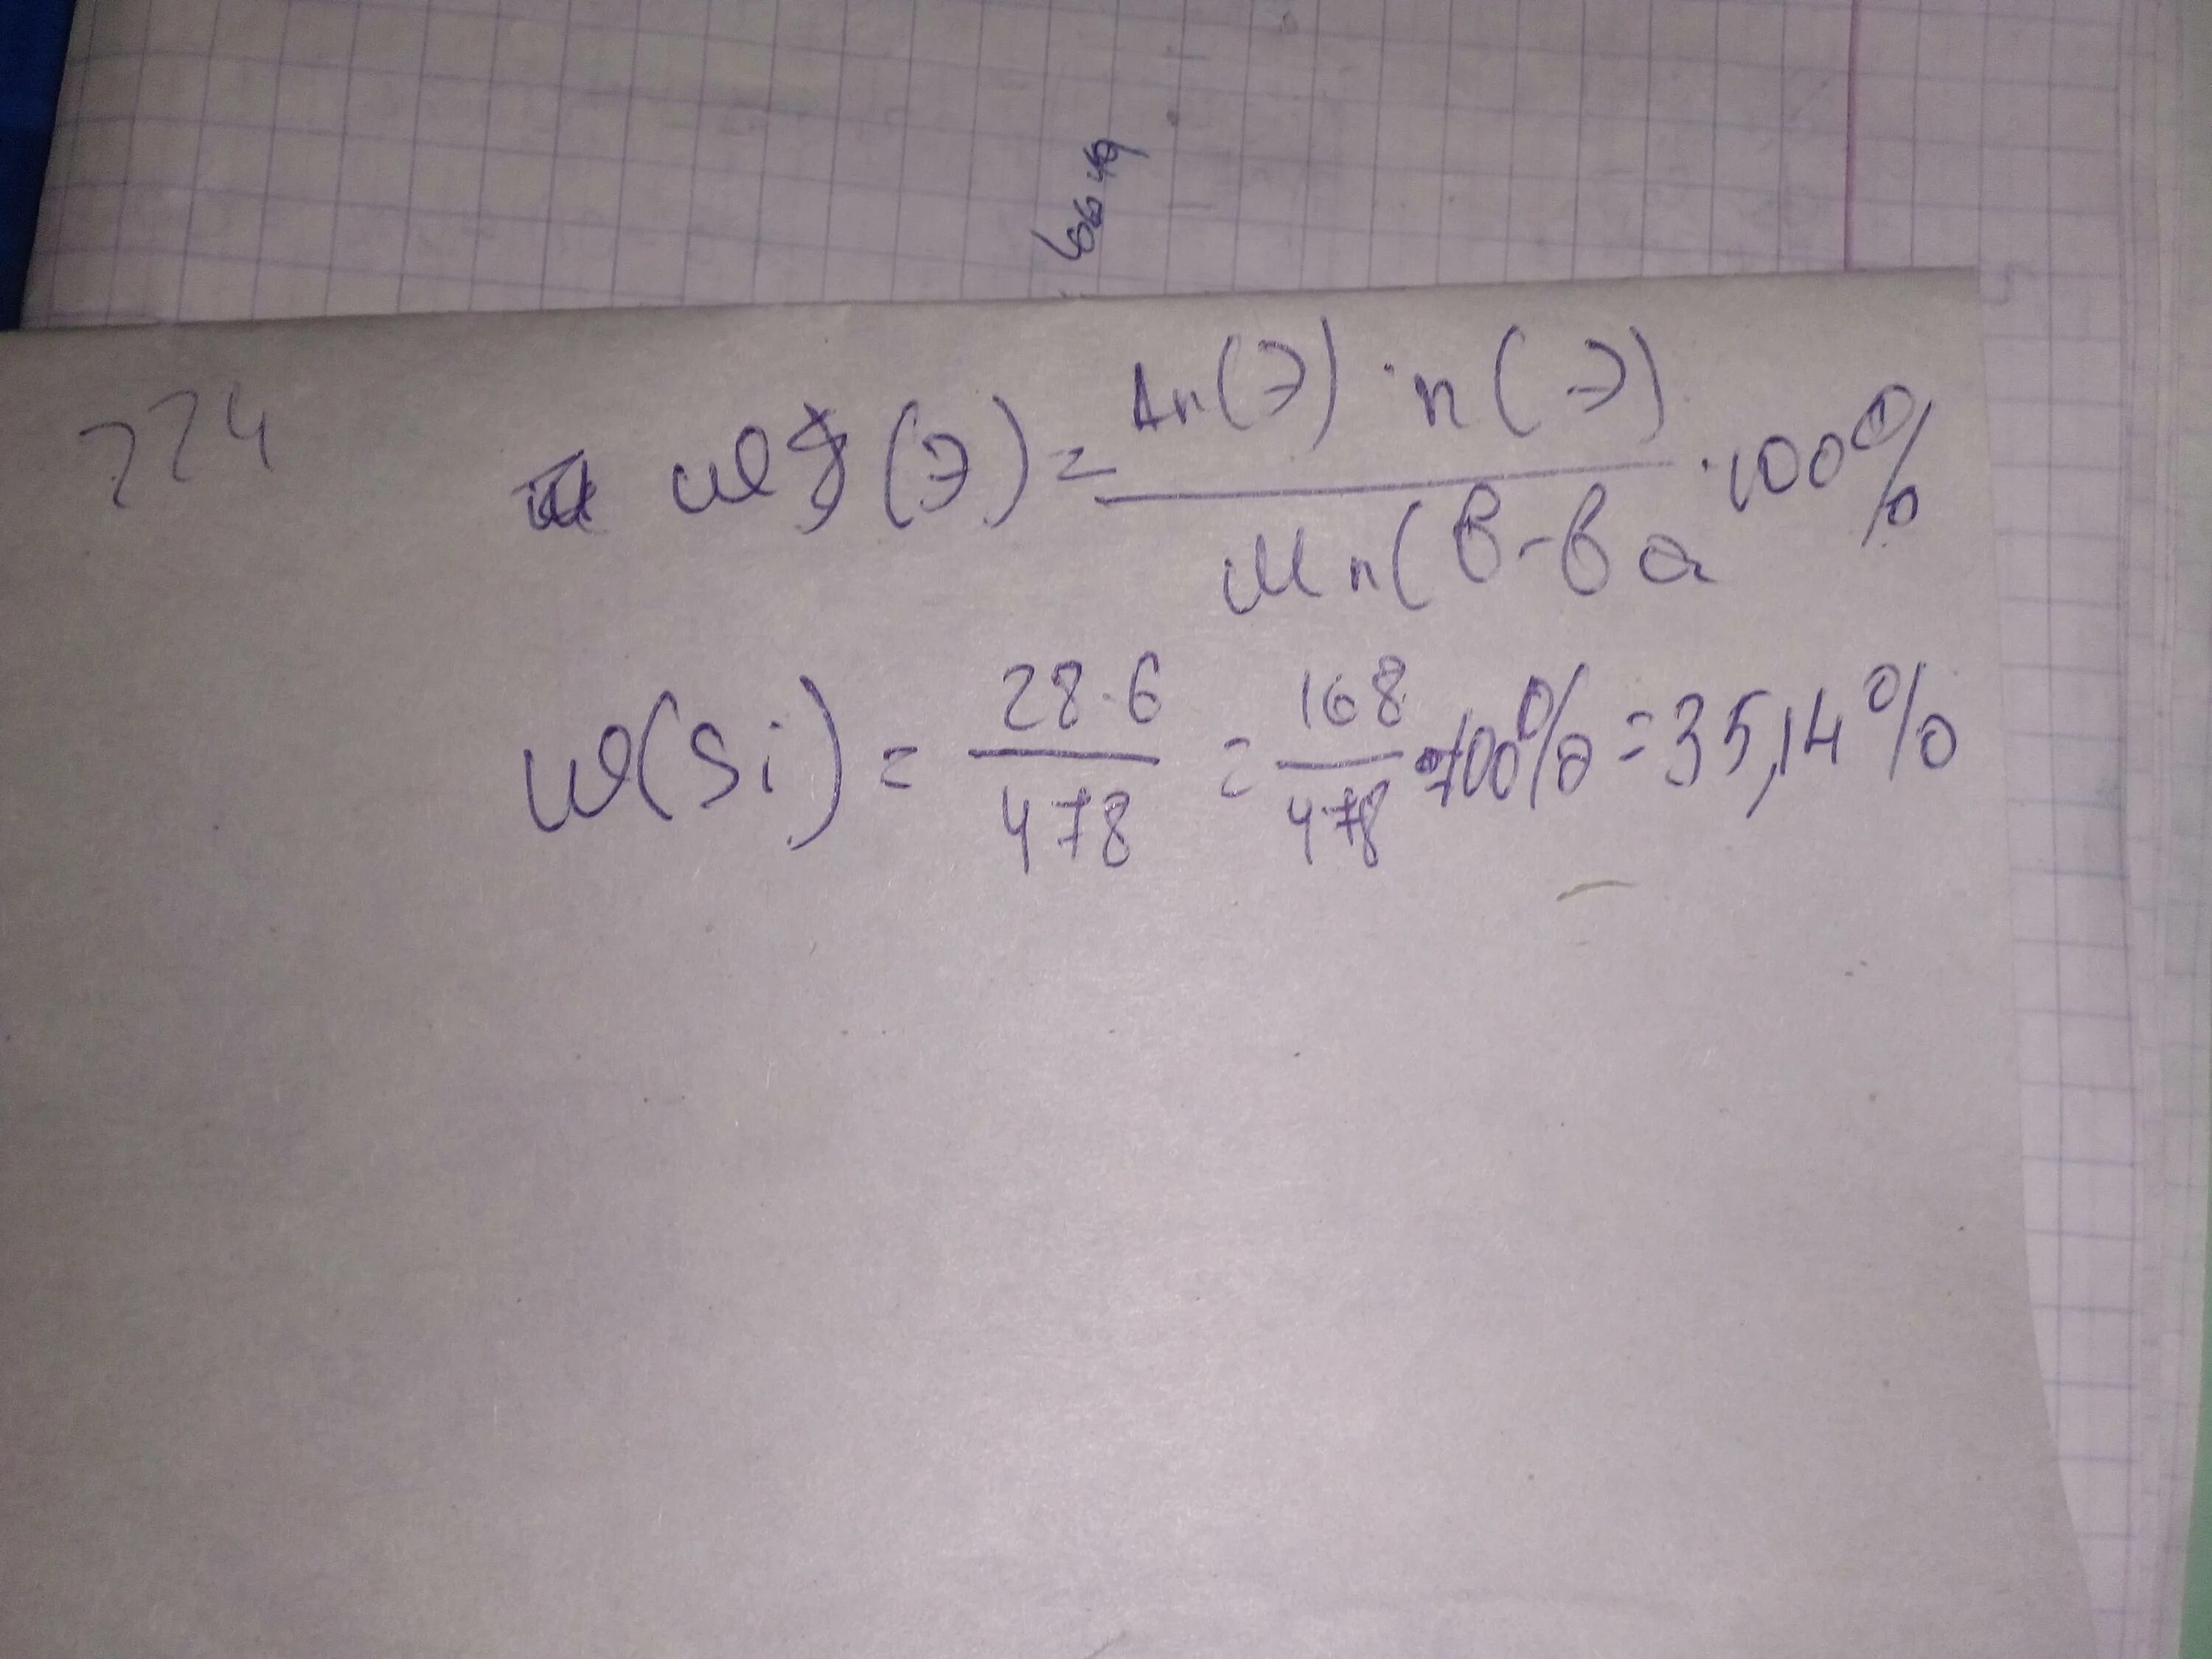 224
w (Э) = Ar(Э) · n(Э) / Mr(в-ва · 100%
w(Si) = 28·6 / 478 = 168 / 478 · 100% = 35,14%